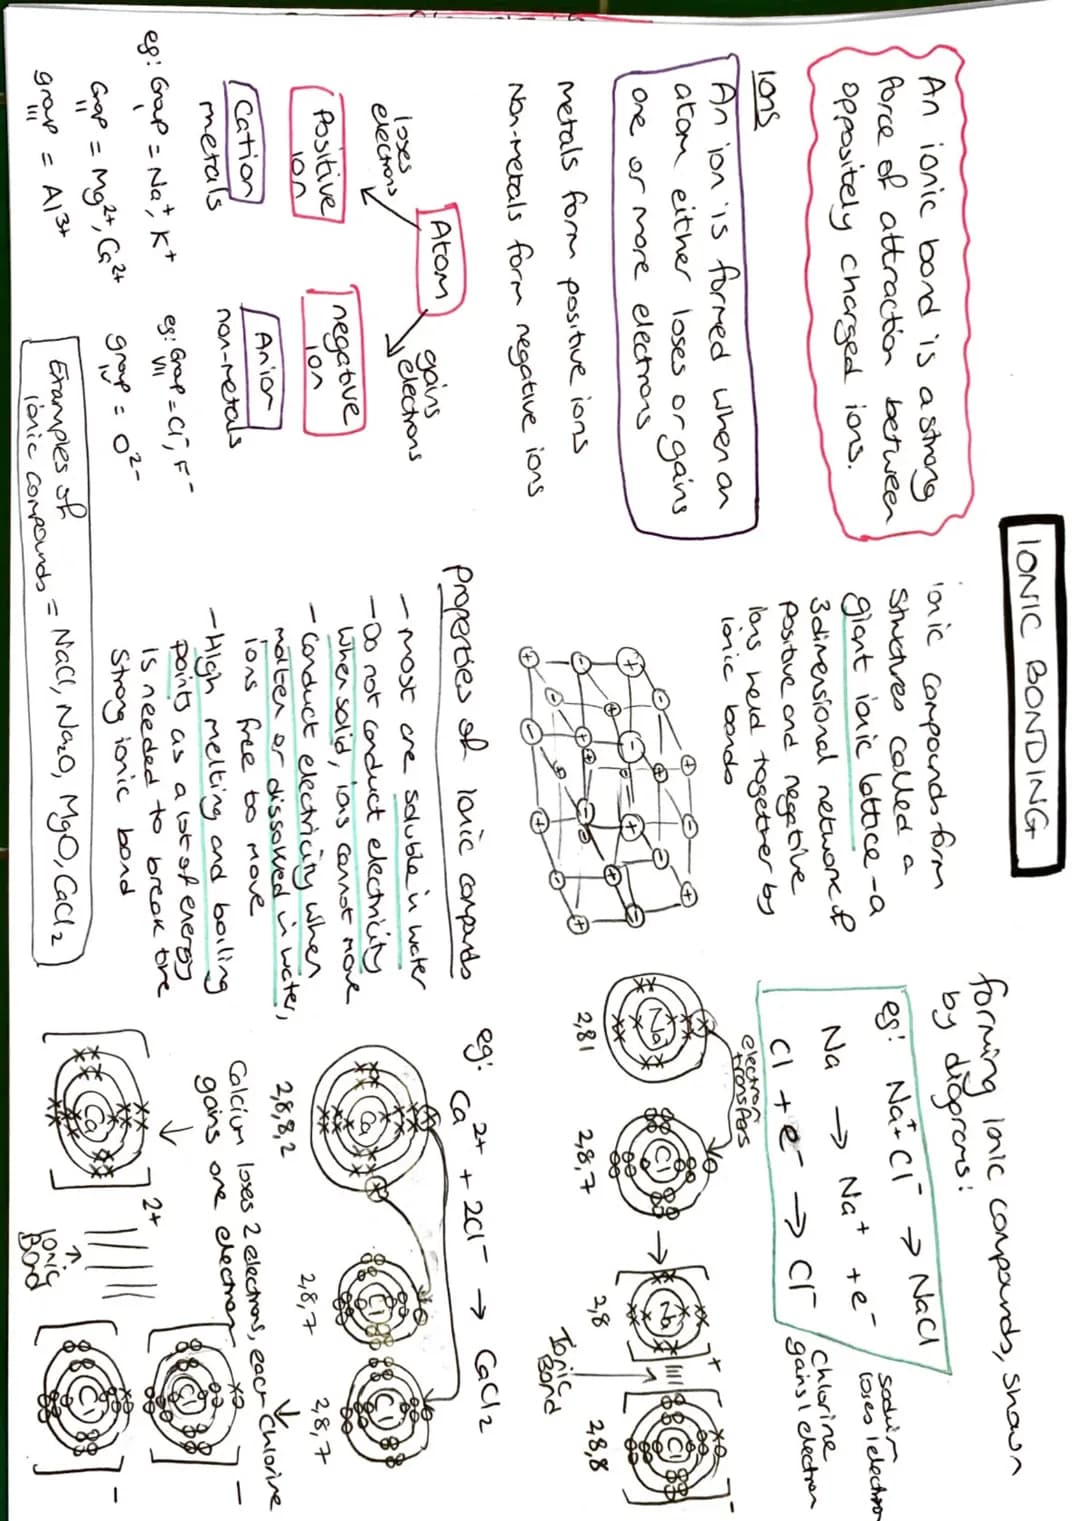 IONIC BONDING
An ionic bond is a strong
force of attraction between
oppositely charged ions.
Ions
An ion is formed when an
atom either loses or gains
one or more electrons
metals form positive ions
Non-metals form negative ions
Atom
loses
electrons
gains
electrons
Positive
ion
negative
ion
Cation
metals
Anion
non-metals
eg: Group = Na⁺, K⁺
I
Group = Mg²⁺, Ca²⁺
II
group = Al³⁺
III
eg: Group = Cl⁻, F⁻
VII
group = O²⁻
IV
Examples of
ionic compounds = NaCl, Na₂O, MgO, CaCl₂
ionic compounds form
structures called a
giant ionic lattice - a
3dimensional network of
positive and negative
ions held together by
ionic bonds
Properties of ionic compounds
- most are soluble in water
- Do not conduct electricity
when solid, ions cannot move
- conduct electricity when
molten or dissolved in water,
ions free to move
- High melting and boiling
points as a lot of energy
is needed to break the
strong ionic bond
forming ionic compounds, shown
by diagrams:
eg: Na⁺ + Cl⁻ → NaCl
Na → Na⁺ + e⁻
Cl + e⁻ → Cl⁻
sodium
loses 1 electron
Chlorine
gains 1 electron
electron
transfers
Na
Cl
Na
+
Cl
-
2,8,1
2,8,7
2,8
2,8,8
Ionic
Bond
eg: Ca²⁺ + 2Cl⁻ → CaCl₂
Ca
Cl
Cl
2,8,8,2
2,8,7
2,8,7
Calcium loses 2 electrons, each Chlorine
gains one electron
Ca
2+
Cl
-
Cl
-
Ionic
Bond